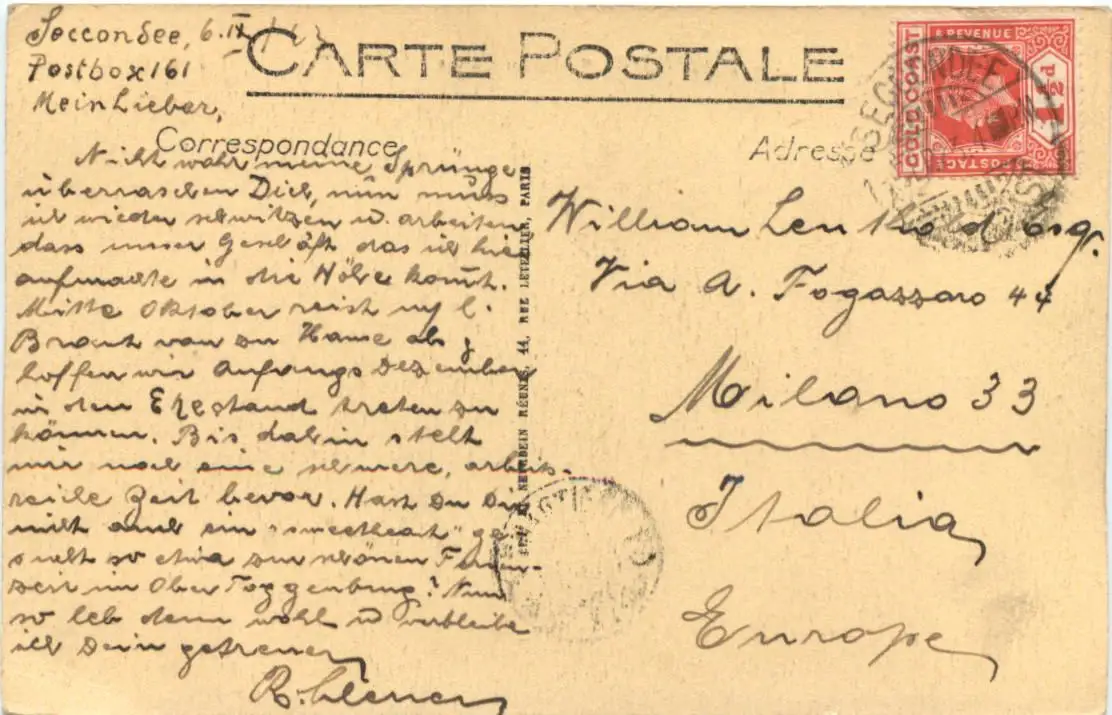 Seccondee, 6. IX
Postbox 161
Mein Lieber,
CARTE POSTALE
Correspondance
Nicht wahr meine Sprünge
überraschen Dich, nun muss
ich wieder schwitzen u. arbeiten
dass unser Geschäft das ich hier
aufmachte in die Höhe kommt.
Mitte Oktober reist m/ l.
Braut von zu Hause ab &
hoffen wir Anfangs Dezember
in den Ehestand treten zu
können. Bis dahin steht
mir noch eine schwere, arbeits-
reiche Zeit bevor. Hast Du Dir
nicht auch ein "sweetheart" ge-
sucht so etwa zur schönen Ferien-
zeit im Ober Toggenburg? Nun
so leb denn wohl u verbleibe
ich Dein getreuer
NEURDEIN RÉUNIS, 44, RUE LETELLIER, PARIS
Adresse
GOLD COAST
& REVENUE
POSTAGE
1½d
SECCONDEE
William Leuthold esq.
Via A. Fogazzaro 44
Milano 33
Italia
Europe